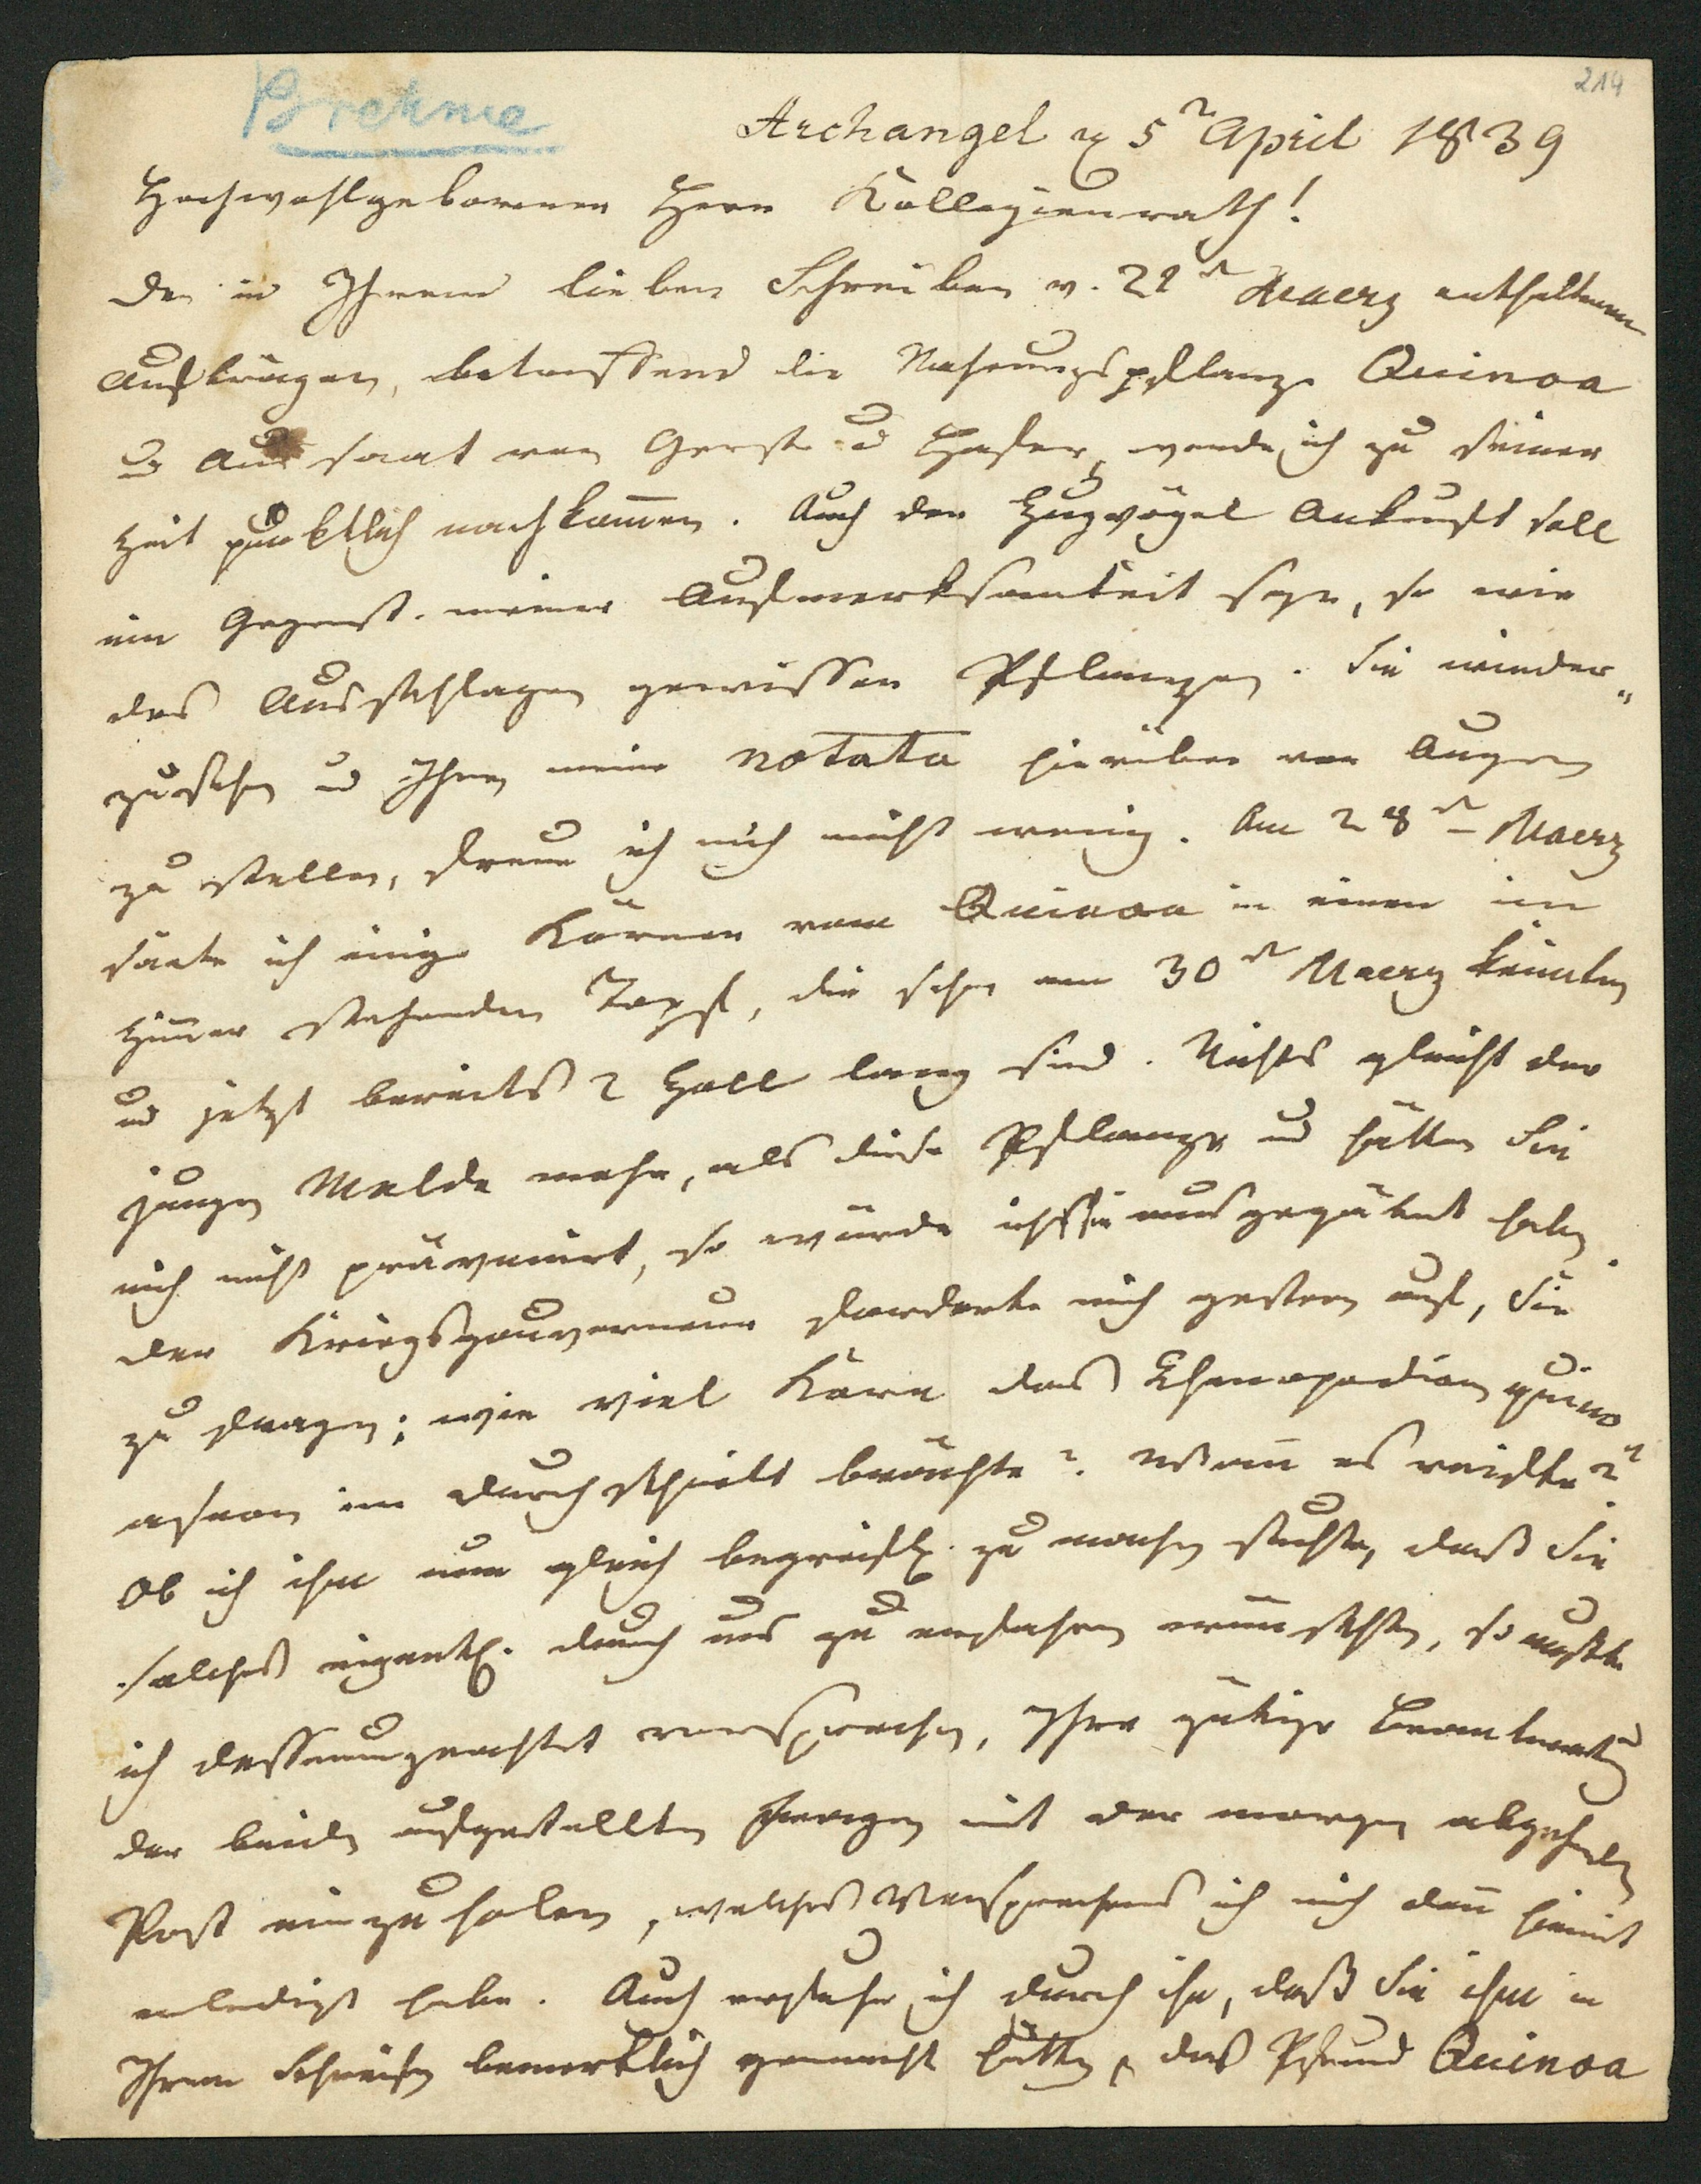 214
Brehme
Archangel d. 5 April 1839
Hochwohlgeborener Herr Kollegienrath!
Den in Ihrem lieben Schreiben v. 22t Maerz enthaltenen
Aufträgen, betreffend die Nahrungspflanze Quinoa
u Aussaat von Gerste u Hafer, werde ich zu seiner
Zeit pünktlich nachkom̄en. Auch der Zugvögel Ankunft soll
ein Gegenst. meiner Aufmerksamkeit seyn, so wie
das Ausschlagen gewisser Pflanzen. Sie wieder-
zusehen ud Ihnen meine notata hierüber vor Augen
zu stellen, freue ich mich nicht wenig. Am 28t Maerz
säete ich einige Körner vom Quinoa in einen im
Zim̄er stehenden Topf, die schon am 30t Maerz keimten
ud jetzt bereits 2 Zoll lang sind. Nichts gleicht der
jungen Melde mehr, als diese Pflanze ud hätten Sie
mich nicht prävenirt, so würde ich sie ausgejätet haben.
Der Kriegsgouverneur forderte mich gestern auf, Sie
zu fragen: wie viel Korn das Chenopodium quino
im Durchschnitt brächte? Wan̄ es reifte?
Ob ich ihm nun gleich begreifl. zu machen suchte, daß Sie
solches eigentl. durch uns zu erfahren wünschten, so mußte
ich dessenungeachtet versprechen, Ihre gütige Beantwortung
der beiden aufgestellten Fragen mit der morgen abgehenden
Post einzuholen, welches Versprechens ich mich den̄ hiemit
erledigt habe. Auch erfuhr ich durch ihn, daß Sie ihm in
Ihrem Schreiben bemerklich gemacht hätten, das Pfund Quinoa